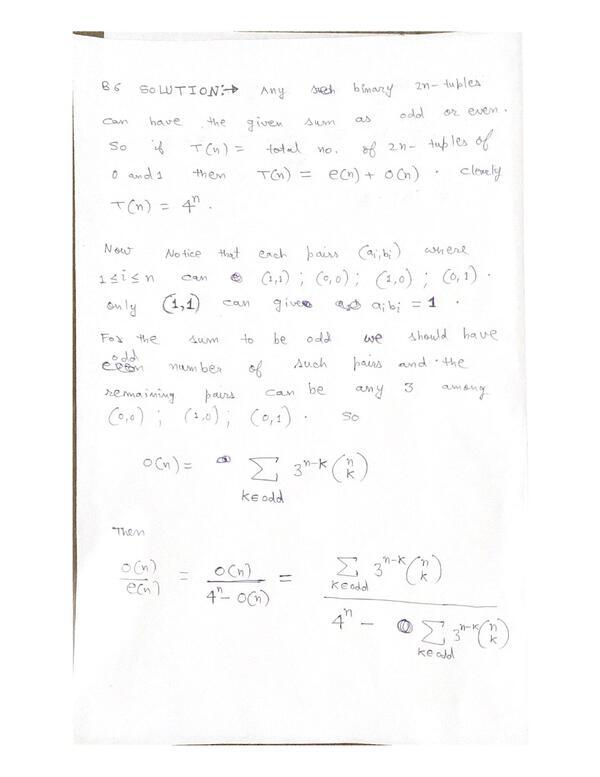 B6 SOLUTION:→ Any such binary 2n-tuples
can have the given sum as odd or even.
So if T(n) = total no. of 2n-tuples of
0 and 1 then T(n) = e(n) + o(n). clearly
T(n) = 4^n.
Now Notice that each pairs (a_i, b_i) where
1 ≤ i ≤ n can (1,1); (0,0); (1,0); (0,1).
only (1,1) can give a_i b_i = 1.
For the sum to be odd we should have
odd number of such pairs and the
remaining pairs can be any 3 among
(0,0); (1,0); (0,1). So
O(n) = ∑_{k∈odd} 3^{n-k} (n k)
Then
O(n)/e(n) = O(n)/(4^n - O(n)) = ∑_{k∈odd} 3^{n-k} (n k) / (4^n - ∑_{k∈odd} 3^{n-k} (n k))